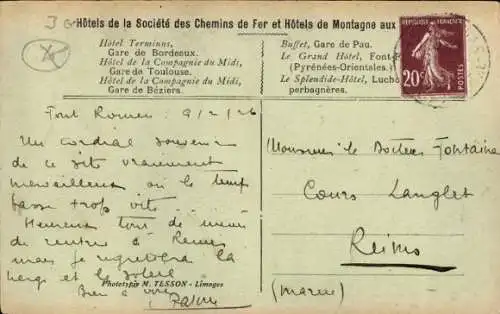 Hôtels de la Société des Chemins de Fer et Hôtels de Montagne aux
Hôtel Terminus,
Gare de Bordeaux.
Hôtel de la Compagnie du Midi,
Gare de Toulouse.
Hôtel de la Compagnie du Midi,
Gare de Béziers.
Buffet, Gare de Pau.
Le Grand Hôtel, Font-
(Pyrénées-Orientales.)
Le Splendide-Hôtel, Lucho
perbagnères.
20c
POSTES
Font Romeu 9/2/26
Un cordial souvenir
de ce site vraiment
merveilleux où le temps
passe trop vite.
Heureux tout de même
de rentrer à Reims
mais je regretterai la
neige et le soleil
Bien à vous
Monsieur le Docteur Fontaine
Cours Langlet
Reims
(Marne)
Phototypie M. TESSON - Limoges